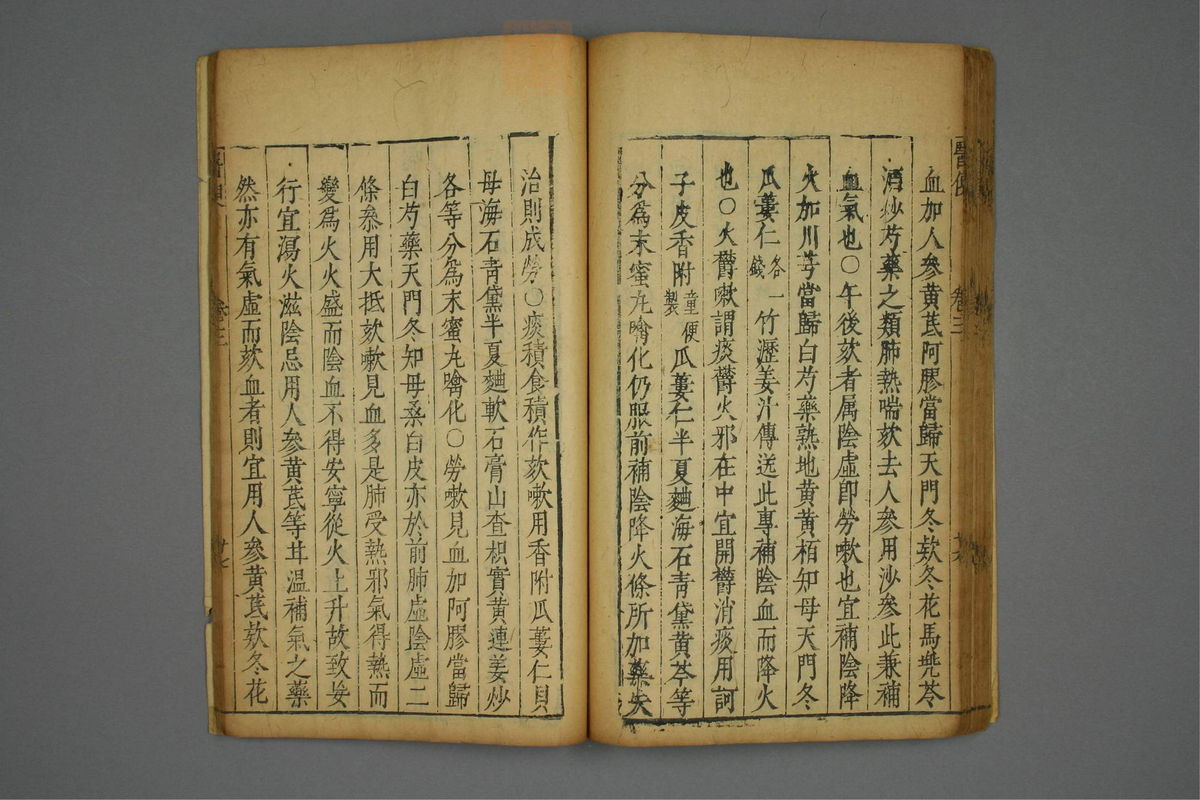 血加人參黃芪阿膠當歸天門冬欵冬花馬兠苓
酒炒芍藥之類肺熱喘欬去人參用沙參此兼補
血氣也〇午後欬者属陰虛卽勞嗽也宜補陰降
火加川芎當歸白芍藥熟地黃黃栢知母天門冬
瓜蔞仁各一錢竹瀝姜汁傳送此專補陰血而降火
也〇火欝嗽謂痰欝火邪在中宜開欝消痰用訶
子皮香附童便製瓜蔞仁半夏麯海石靑黛黃芩等
分爲末蜜丸噙化仍服前補陰降火條所加藥失
治則成勞〇痰積食積作欬嗽用香附瓜蔞仁貝
母海石靑黛半夏麯軟石膏山查枳實黃連姜炒
各等分爲末蜜丸噙化〇勞嗽見血加阿膠當歸
白芍藥天門冬知母桑白皮亦於前肺虛陰虛二
條叅用大抵欬嗽見血多是肺受熱邪氣得熱而
變爲火火盛而陰血不得安寧從火上升故致妄
行宜瀉火滋陰忌用人參黃芪等甘温補氣之藥
然亦有氣虛而欬血者則宜用人參黃芪欵冬花
醫便
卷三
廿七